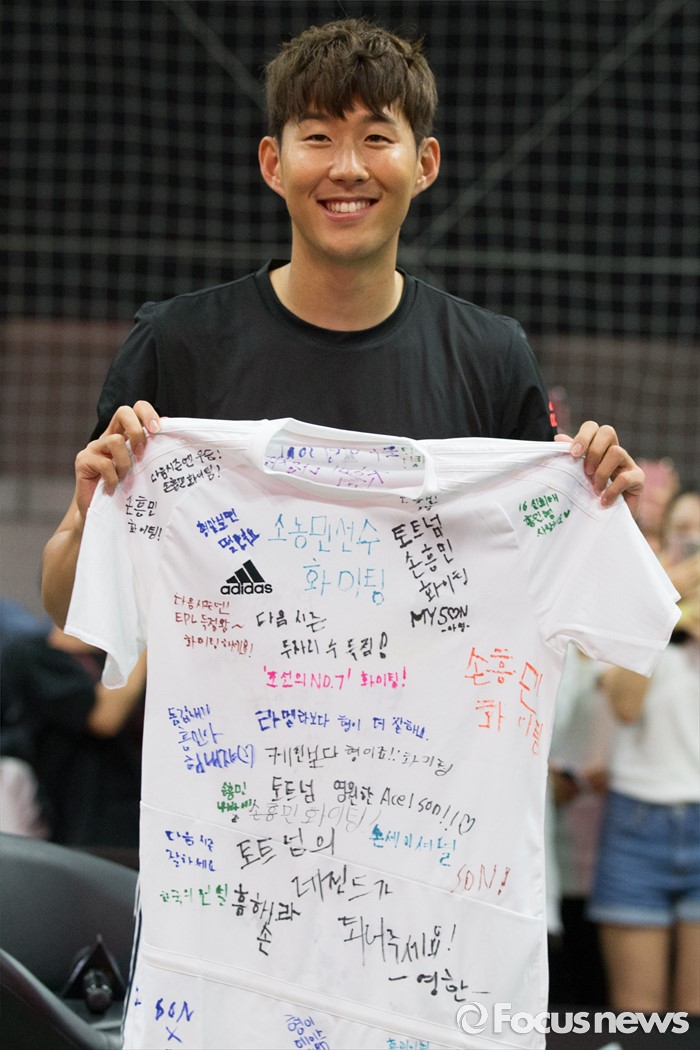 다음시즌엔 우승!
손흥민 화이팅!
손흥민
화이팅!
손흥민선수
화이팅
토트넘
손흥민
화이팅
MY SON
사랑해♡
adidas
EPL 득점왕~
화이팅하세요!
다음 시즌
두자리 수 득점!
'조선의 NO.7' 화이팅!
손흥민
화이팅
동갑내기
흥민아
힘내자♡
라멜라보다 형이 더 잘하니..
케인보다 형이죠!! 화이팅
손흥민
토트넘 영원한 Ace! Son!!♡
손흥민 화이팅!
다음 시즌
잘하세요
토트넘의
손세이셔널
레전드가
SON!
한국의 전설
흥해라
손
되어주세요!
-영한-
SON
X
형이
Focusnews